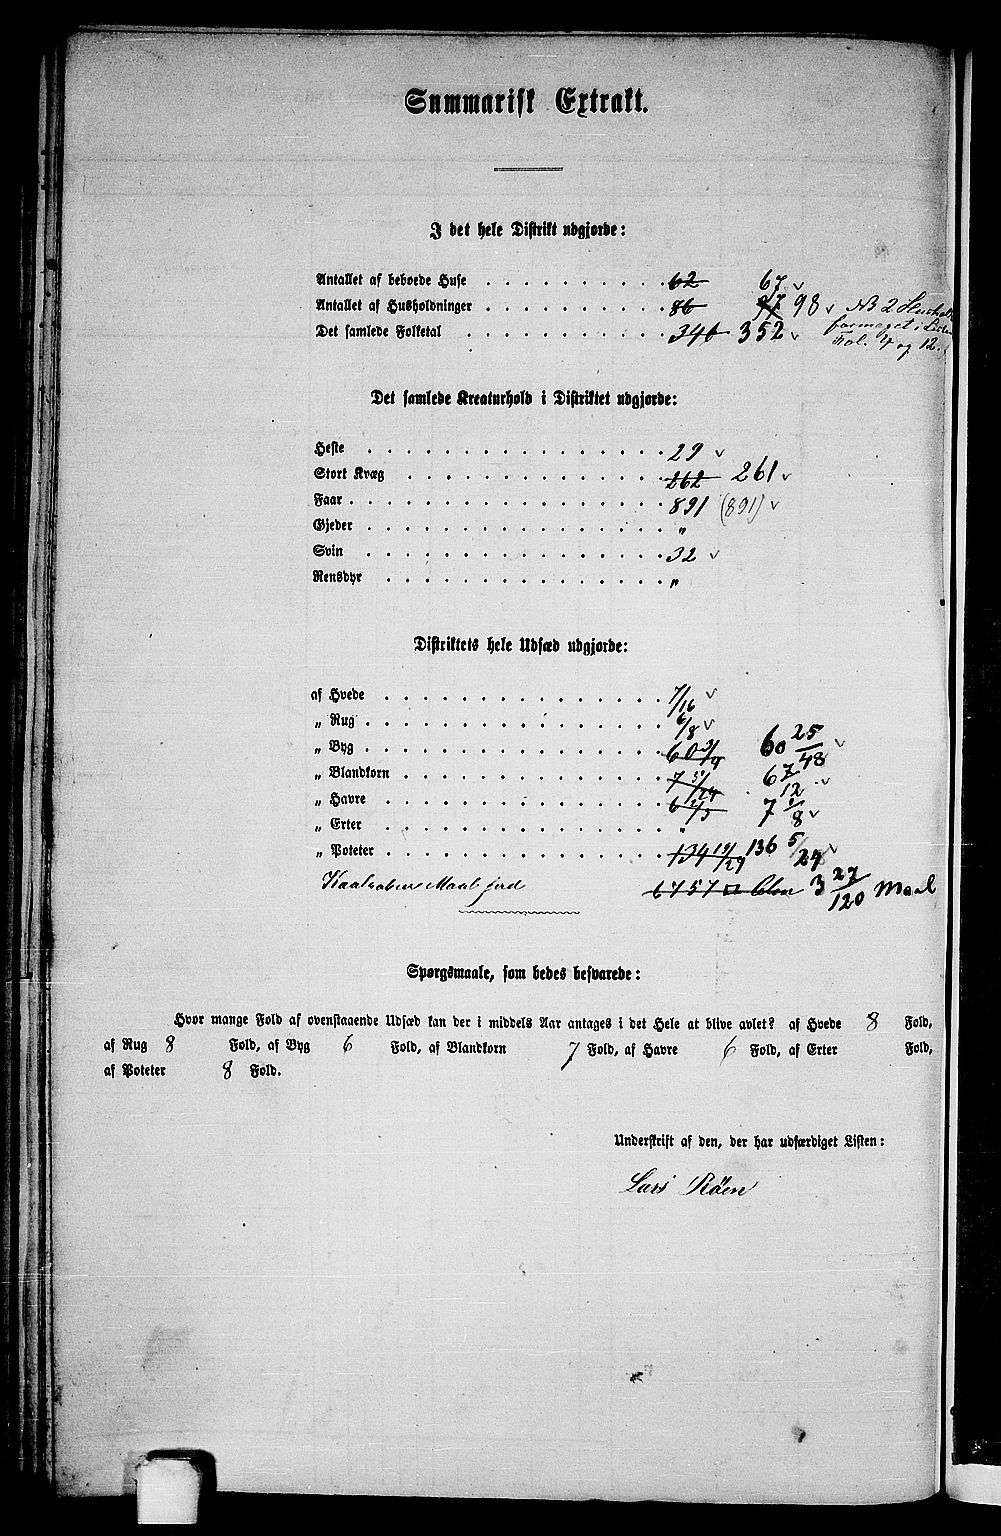 Summarisk Extrakt.
I det hele Distrikt udgjorde:
Antallet af beboede Huse 62 67
Antallet af Husholdninger 86 97 98 NB 2 Hushol
Det samlede Folketal 346 352 i Listen
Fol. 4 og 12.
Det samlede Kreaturhold i Distriktet udgjorde:
Heste 29
Stort Kvæg 262 261
Faar 891 (891)
Gjeder "
Svin 32
Rensdyr "
Distriktets hele Udsæd udgjorde:
af Hvede 7/16
" Rug 6/8
" Byg 60 3/4 60 25/48
" Blandkorn 7 5/24 6 7/12
" Havre 6 2/3 7 1/8
" Erter "
" Poteter 134 19/24 136 5/24
Maal jord 6757 □ Alen 3 27/120 Maal
Spørgsmaale, som bedes besvarede:
Hvor mange Fold af ovenstaaende Udsæd kan der i middels Aar antages i det Hele at blive avlet? af Hvede 8 Fold,
af Rug 8 Fold, af Byg 6 Fold, af Blandkorn 7 Fold, af Havre 6 Fold, af Erter Fold,
af Poteter 8 Fold.
Underskrift af den, der har udfærdiget Listen:
Lars Röen